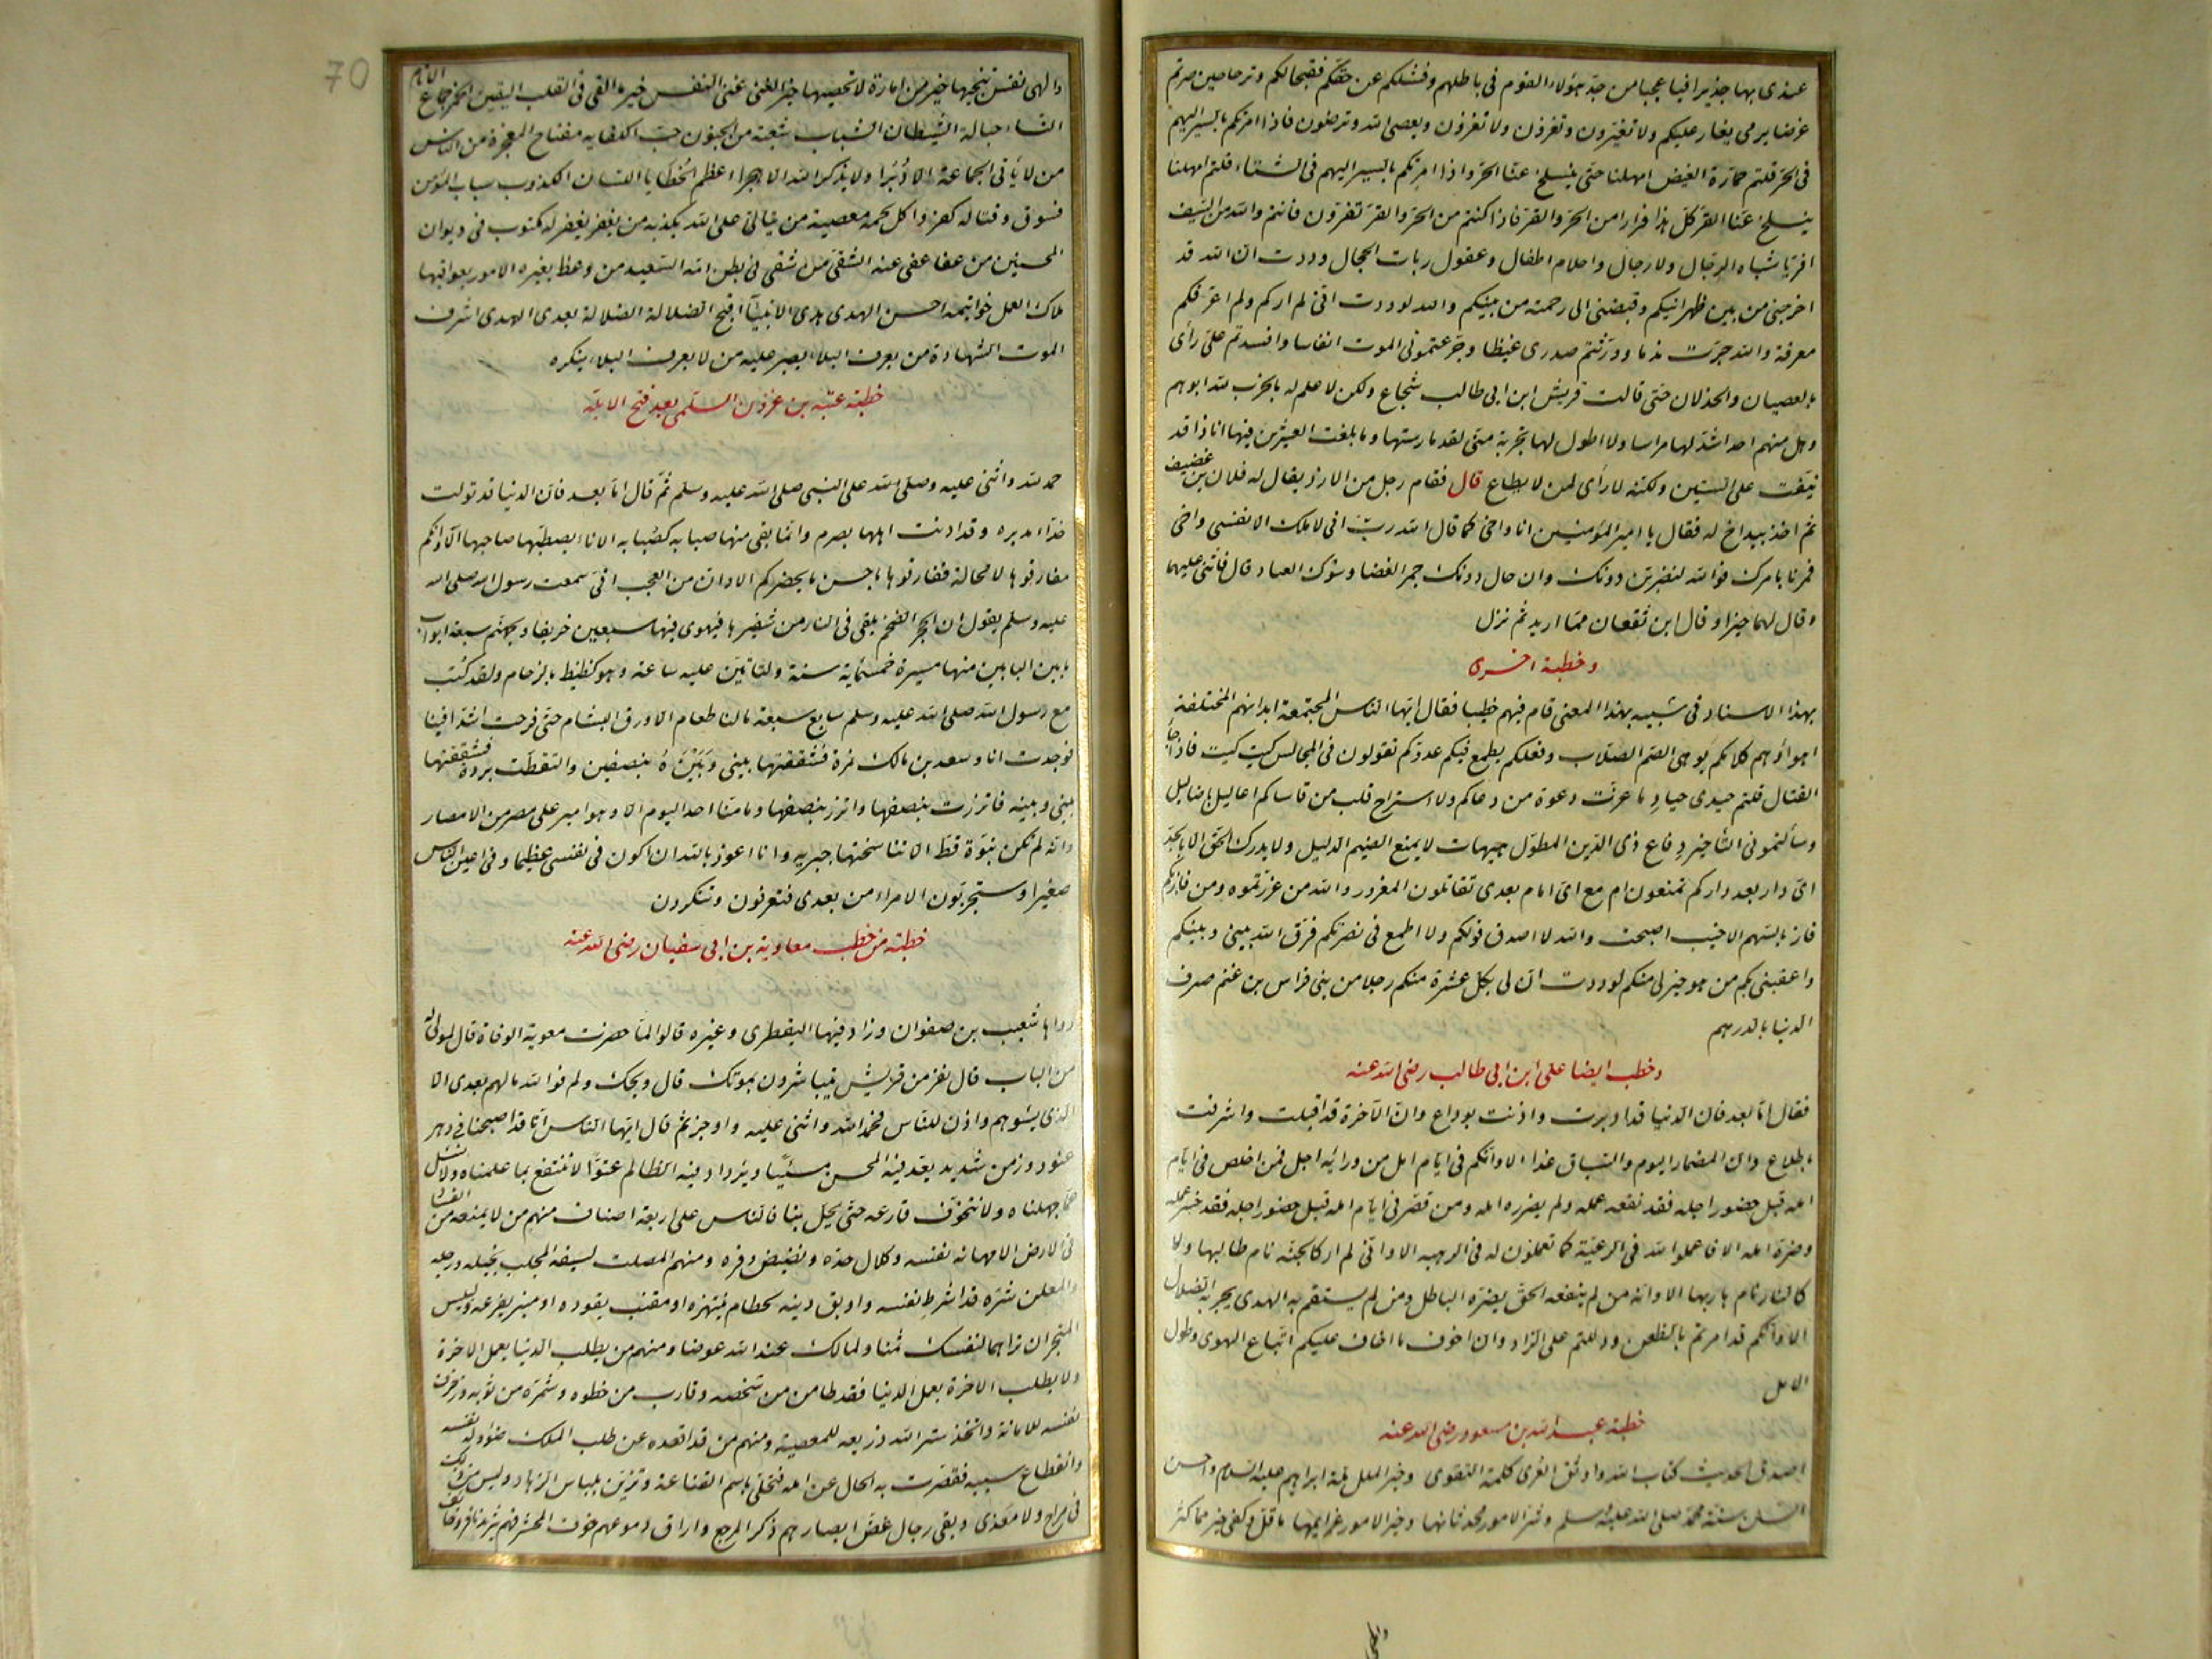 عندى بها جذيرا فيا عجبا من جدّ هؤلاء القوم فى باطلهم وفشلكم عن حقّكم فقبحا لكم وترحا حين صرتم
غرضا يرمى يغار عليكم ولا تغيرون وتغزون ولا تغزون ويعصى الله وترضون فاذا امرتكم بالسير اليهم
فى الحر قلتم حمارّة الغيض امهلنا حتى ينسلخ عنا الحرّ واذا امرتكم بالسير اليهم فى الشتاء قلتم امهلنا
ينسلخ عنا القرّ كلّ هذا فرارا من الحرّ والقرّ فاذا كنتم من الحرّ والقرّ تفرّون فانتم والله من السّيف
افرّ يا اشباه الرجال ولا رجال واحلام اطفال وعقول ربات الحجال وددت ان الله قد
اخرجنى من بين ظهرانيكم وقبضنى الى رحمته من بينكم والله لوددت انّى لم اركم ولم اعرفكم
معرفة والله جرّت ندما وورّثتم صدرى غيظا وجرّعتمونى الموت انفاسا وافسدتم علىّ رأى
بالعصيان والخذلان حتى قالت قريش ابن ابى طالب شجاع ولكن لا علم له بالحرب لله ابوهم
وهل منهم احد اشدّ لها مراسا ولا اطول لها تجربة منى لقد مارستها وما بلغت العشرين فيها انا ذا قد
نيّفت على الستين ولكنه لا رأى لمن لا يطاع قال فقام رجل من الازد يقال له فلان بن عفيف
ثم اخذ بيد اخ له فقال يا امير المؤمنين انا واخى كما قال الله رب انى لا املك الا نفسى واخى
فمرنا بامرك فوالله لنضربن دونك وان حال دونك جمر الغضا وشوك العباد قال فاثنى عليهما
وقال لهما خيرا وقال اين تقعان مما اريد ثم نزل
وخطبة اخرى
بهذا الاسناد فى شبيه بهذا المعنى قام فيهم خطيبا فقال ايّها الناس المجتمعة ابدانهم المختلفة
اهواؤهم كلامكم يوهى الصم الصلاب وفعلكم يطمع فيكم عدوّكم تقولون فى المجالس كيت كيت فاذا جاء
القتال قلتم حيدى حياد ما عزّت دعوة من دعاكم ولا استراح قلب من قاساكم اعاليل باضاليل
وسألتمونى التأخير دفاع ذى الدّين المطوّل هيهات لا يمنع الضيم الذليل ولا يدرك الحق الا بالجدّ
اى دار بعد داركم تمنعون ام مع اى امام بعدى تقاتلون المغرور والله من غررتموه ومن فاز بكم
فاز بالسّهم الاخيب اصبحت والله لا اصدق قولكم ولا اطمع فى نصرتكم فرّق الله بينى وبينكم
واعقبنى بكم من هو خير لى منكم لوددت ان لى بكل عشرة منكم رجلا من بنى فراس بن غنم صرف
الدنيا بالدرهم
وخطب ايضا على ابن ابى طالب رضى الله عنه
فقال امّا بعد فان الدنيا قد ادبرت واذنت بوداع وانّ الآخرة قد اقبلت واشرفت
باطلاع وان المضمار اليوم والسّباق غدا الا وانّكم فى ايام امل من ورائه اجل فمن اخلص فى ايام
امله قبل حضور اجله فقد نفعه عمله ولم يضرره امله ومن قصّر فى ايام امله قبل حضور اجله فقد خسر عمله
وضرّه امله الا فاعملوا لله فى الرغبة كما تعملون له فى الرهبة الا وانّى لم ار كالجنّة نام طالبها ولا
كالنار نام هاربها الا وانّه من لم ينفعه الحقّ يضرّه الباطل ومن لم يستقم به الهدى يجر به الضلال
الا وانكم قد امرتم بالظعن ودللتم على الزاد وان اخوف ما اخاف عليكم اتّباع الهوى وطول
الامل
خطبة عبد الله بن مسعود رضى الله عنه
اصدق الحديث كتاب الله واوثق العرى كلمة التقوى وخير الملل ملة ابراهيم عليه السلام واحسن
السنن سنة محمد صلى الله عليه وسلم وشر الامور محدثاتها وخير الامور عزايمها ما قلّ وكفى خير مما كثر
والهى
70
والهى نفس تنجيها خير من امارة لا تحصيها خير الغنى غنى النفس خير ما القى فى القلب اليقين الخمر جماع الاثام
النساء حبالة الشيطان الشباب شعبة من الجنون حب الكفاية مفتاح المعجزة من الناس
من لا يأتى الجماعة الا دُبُرا ولا يذكر الله الا هجرا اعظم الخطايا اللسان الكذوب سباب المؤمن
فسوق وقتاله كفر واكل لحمه معصية من يتالى على الله يكذبه من يغفر يغفر له مكتوب فى ديوان
المحسنين من عفا عفى عنه الشقى من شقى فى بطن امه السّعيد من وعظ بغيره الامور بعواقبها
ملاك العمل خواتيمه احسن الهدى هدى الانبياء اقبح الضلالة الضلالة بعد الهدى اشرف
الموت الشهادة من يعرف البلاء يصبر عليه من لا يعرف البلاء ينكره
خطبة عتبه بن غزون السلمى بعد فتح الابلّه
حمد الله واثنى عليه وصلى الله على النبى صلى الله عليه وسلم ثم قال امّا بعد فان الدنيا قد تولت
حذّاء مدبره وقد اذنت اهلها بصرم وانما بقى منها صبابه كصبابه الاناء يصطبّها صاحبها الا وانكم
مفارقوها لا محالة ففارقوها باحسن ما يحضركم الا وان من العجب انى سمعت رسول الله صلى الله
عليه وسلم يقول ان الحجر الضخم يلقى فى النار من شفيرها فيهوى فيها سبعين خريفا ولجهنّم سبعة ابواب
ما بين البابين منها مسيرة خمسمائة سنة ولتاتين عليه ساعة وهو كظيظ بالزحام ولقد كنت
مع رسول الله صلى الله عليه وسلم سابع سبعة ما لنا طعام الا ورق البشام حتى قرحت اشداقنا
فوجدت انا وسعد بن مالك نمرة فشققتها بينى وبينه بنصفين والتقطت بردة فشققتها
بينى وبينه فاتزرت بنصفها واتزر بنصفها وما منّا احد اليوم الا وهو امير على مصر من الامصار
وانه لم تكن نبوّة قطّ الا تناسختها جبريه وانا اعوذ بالله ان اكون فى نفسى عظيما وفى اعين الناس
صغيرا وستجربون الامراء من بعدى فتعرفون وتنكرون
خطبة من خطب معاوية بن ابى سفيان رضى الله عنه
رواها شعيب بن صفوان وزاد فيها اليقطرى وغيره قالوا لمّا حضرت معوية الوفاة قال لمولى له
من الباب قال نفر من قريش يتباشرون بموتك قال ويحك ولم فوالله ما لهم بعدى الا
الذى يسوءهم واذن للناس فحمد الله واثنى عليه واوجز ثم قال ايّها الناس انّا قد اصبحنا فى دهر
عنود وزمن شديد يعد فيه المحسن مسيئا ويزداد فيه الظالم عتوّا لا ننتفع بما علمناه ولا نسئل
عمّا جهلناه ولا نتخوّف قارعه حتى تحل بنا فالناس على اربعة اصناف منهم من لا يمنعه من الفساد
فى الارض الا مهانه نفسه وكلال حدّه ونضيض وفره ومنهم المصلت لسيفه المجلب بخيله ورجله
والمعلن بشرّه قد اشرط نفسه واوبق دينه لحطام ينتهزه او مقنب يقوده او منبر يفرعه ولبيس
المتجر ان تراهما لنفسك ثمنا ولمالك عند الله عوضا ومنهم من يطلب الدنيا بعمل الاخرة
ولا يطلب الاخرة بعمل الدنيا فقد طامن من شخصه وقارب من خطوه وشمّر من ثوبه وزخرف
نفسه للامانة واتخذ ستر الله ذريعه للمعصية ومنهم من قد اقعده عن طلب الملك ضؤولة نفسه
وانقطاع سببه فقصّرت به الحال عن امله فتحلّى باسم القناعة وتزيّن بلباس الزهاد وليس من ذلك
فى مراح ولا مغدى وبقى رجال غضّ ابصارهم ذكر المرجع واراق دموعهم خوف المحشر فهم بين شريد نافر وخائف